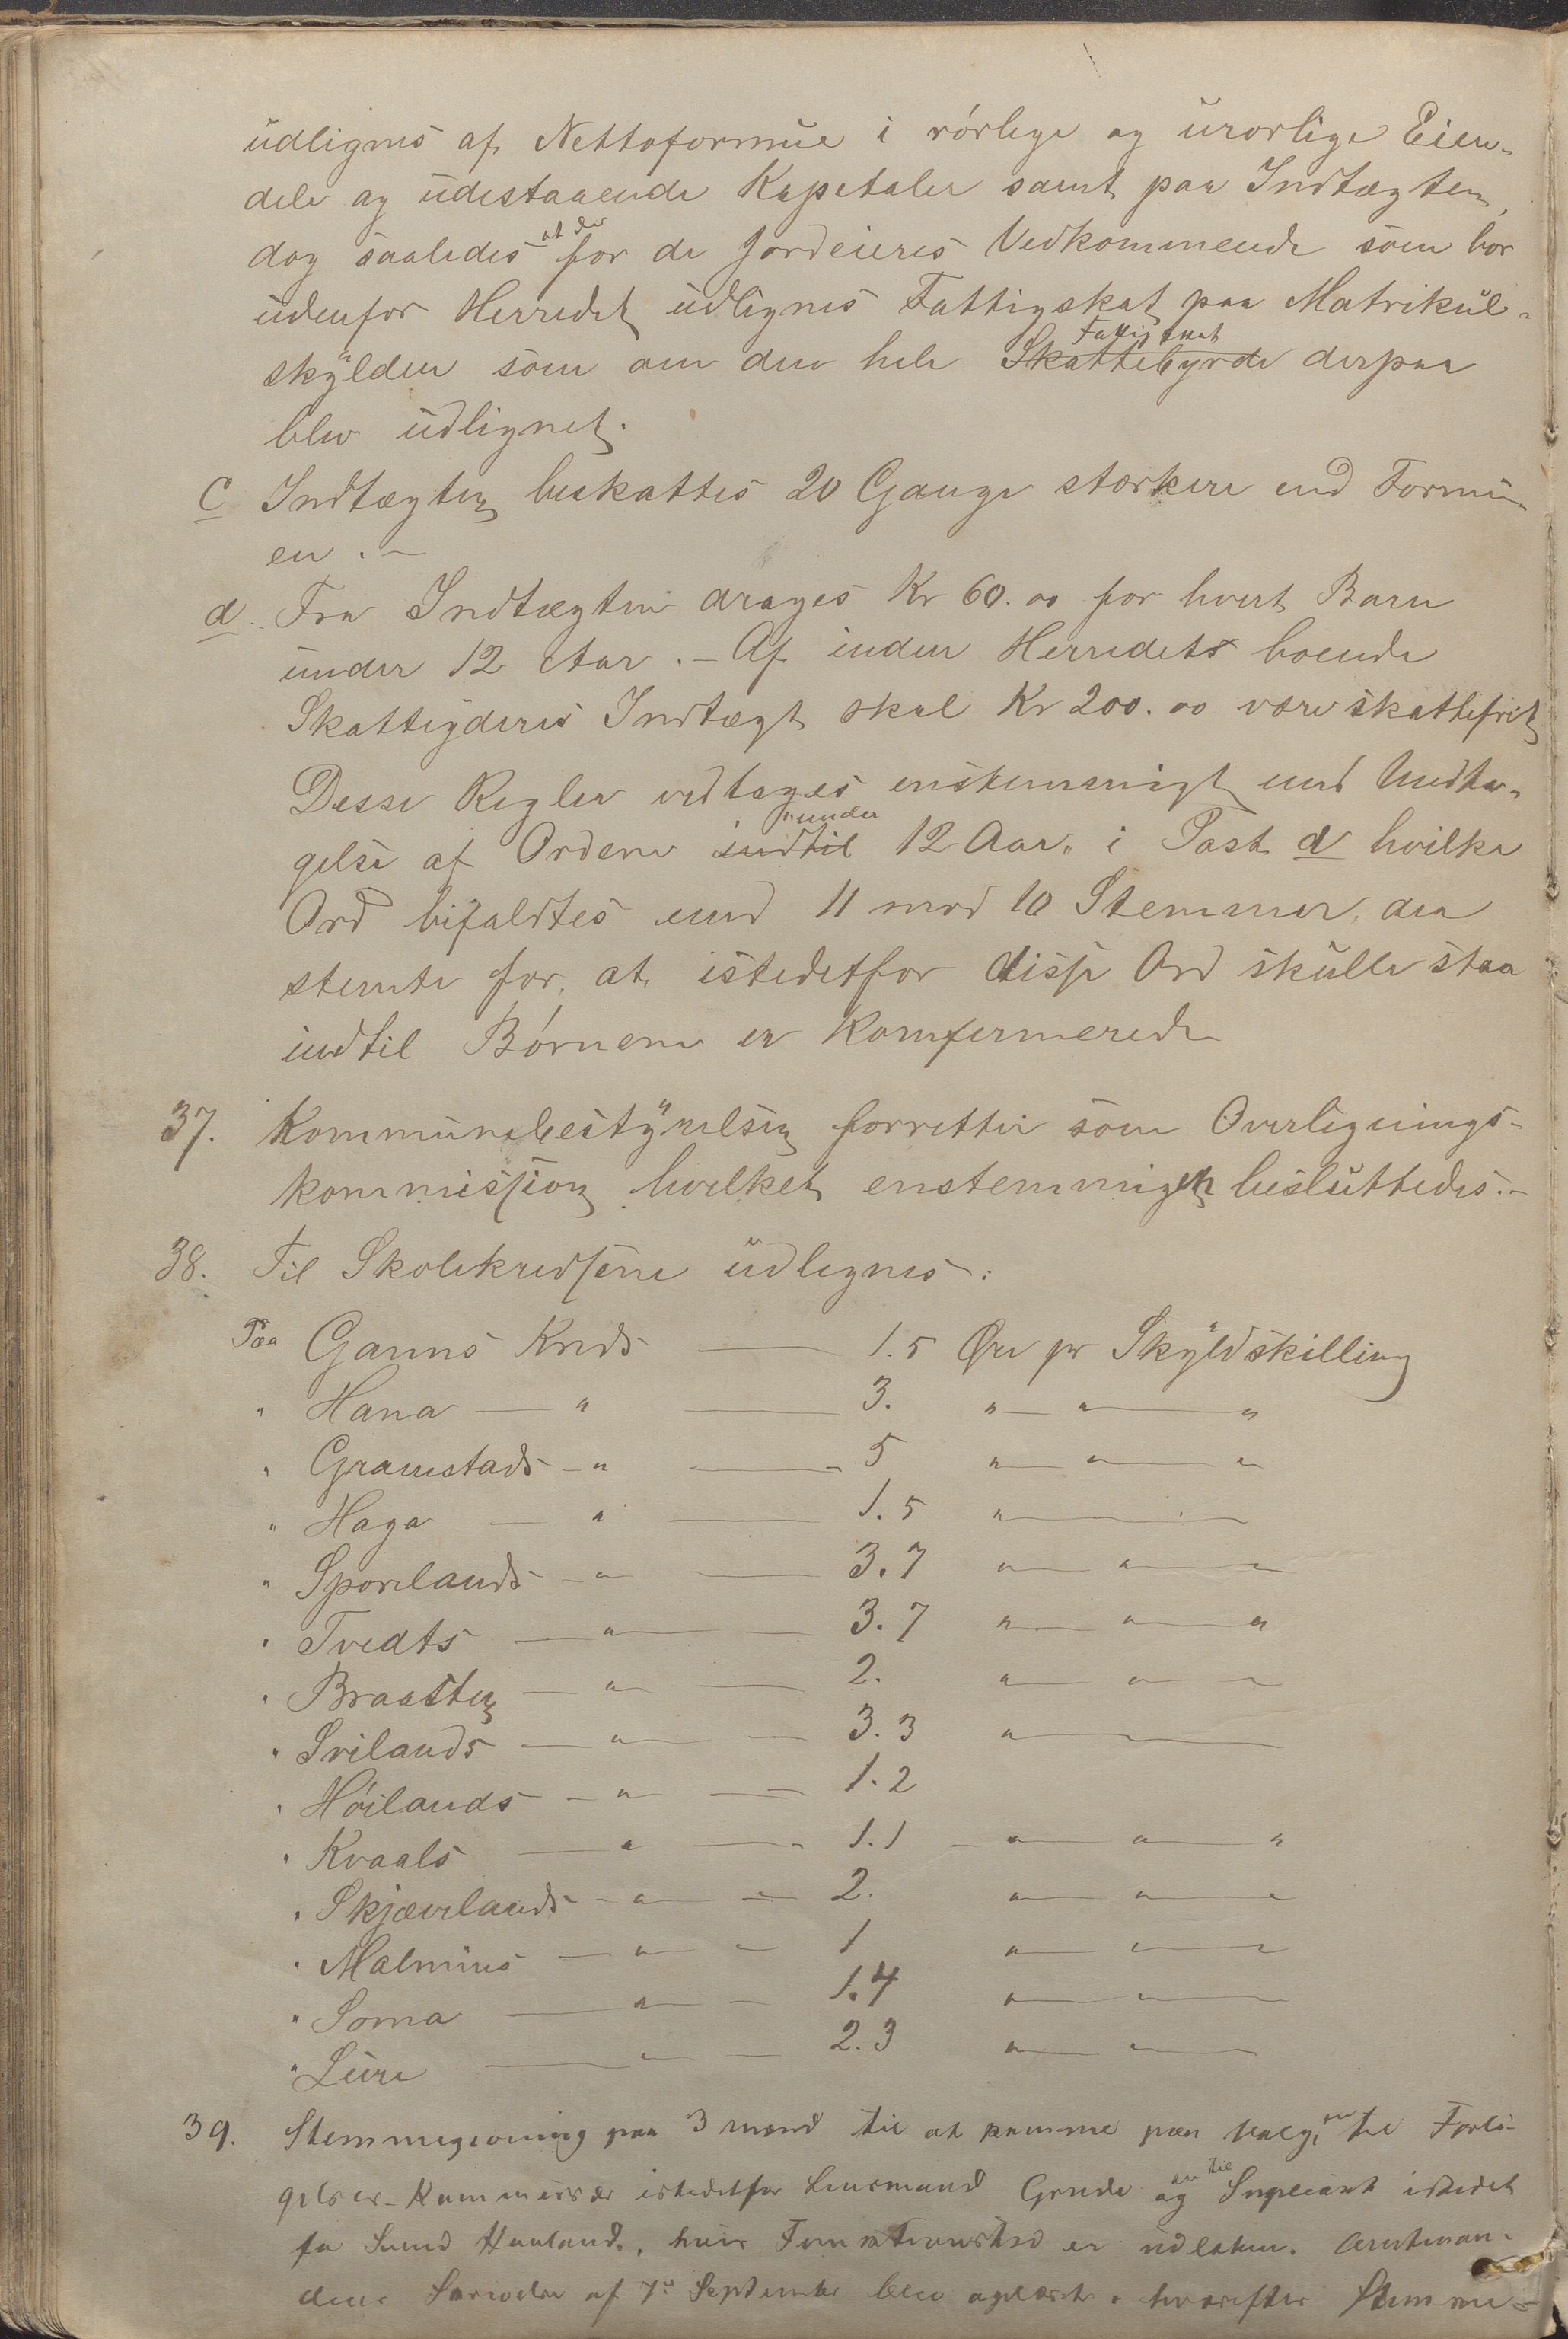 udlignes af Nettoformue i rörlige og urorlige Eien-
dele og udestaaende Kapitaler samt paa Indtægten,
dog saaledes at der for de Jordeieres Vedkommende som bor
udenfor Herredet udlignes Fattigskat paa Matrikul-
skylden som om den hele Skattebyrde Fattigskat derpaa
blev udlignet.
c Indtægten beskattes 20 Gange stærkere end Formu-
en. -
d. Fra Indtægten drages Kr 60.00 for hvert Barn
under 12 Aar. - Af inden Herredets boende
Skatteyderes Indtægt skal Kr 200.00 være skattefrit
Desse Regler vedtages enstemmigt med Undta-
gelse af Ordene indtil "under 12 Aar" i Post d hvilke
Ord bifaldtes med 11 mod 10 Stemmer, der
stemte for, at istedetfor disse Ord skulle staa
indtil Börnene er Komfermerede
37. Kommunebestyrelsen forretter som Overlignings-
kommission hvilket enstemmigen besluttedes. -
38. Til Skolekredsene udlignes:
Paa Ganns Kreds 1.5 Øre pr Skyldskilling
" Hana " 3. " " "
" Gramstads " 5 " " "
" Haga " 1.5 "
" Sporelands " 3.7 " " "
" Tvedts " 3.7 " " "
" Braasten " 2. " " "
" Svilands " 3.3 "
" Höilands " 1.2
" Kvaals " 1.1 " " "
" Skjævelands " 2. " " "
" Malmins " 1 " " "
" Soma " 1.4 " "
" Lure " 2.3 " "
39. Stemmegivning paa 3 mænd til at komme paa Valg, til Forli-
gelses-Kommissær istedetfor Lensmand Grude og en til Supleant istedet
for Svend Haaland, hvis Funktionstid er udloben. Amtman-
dens Skrivelse af 7de September blev oplæst, hvorefter Stemme-